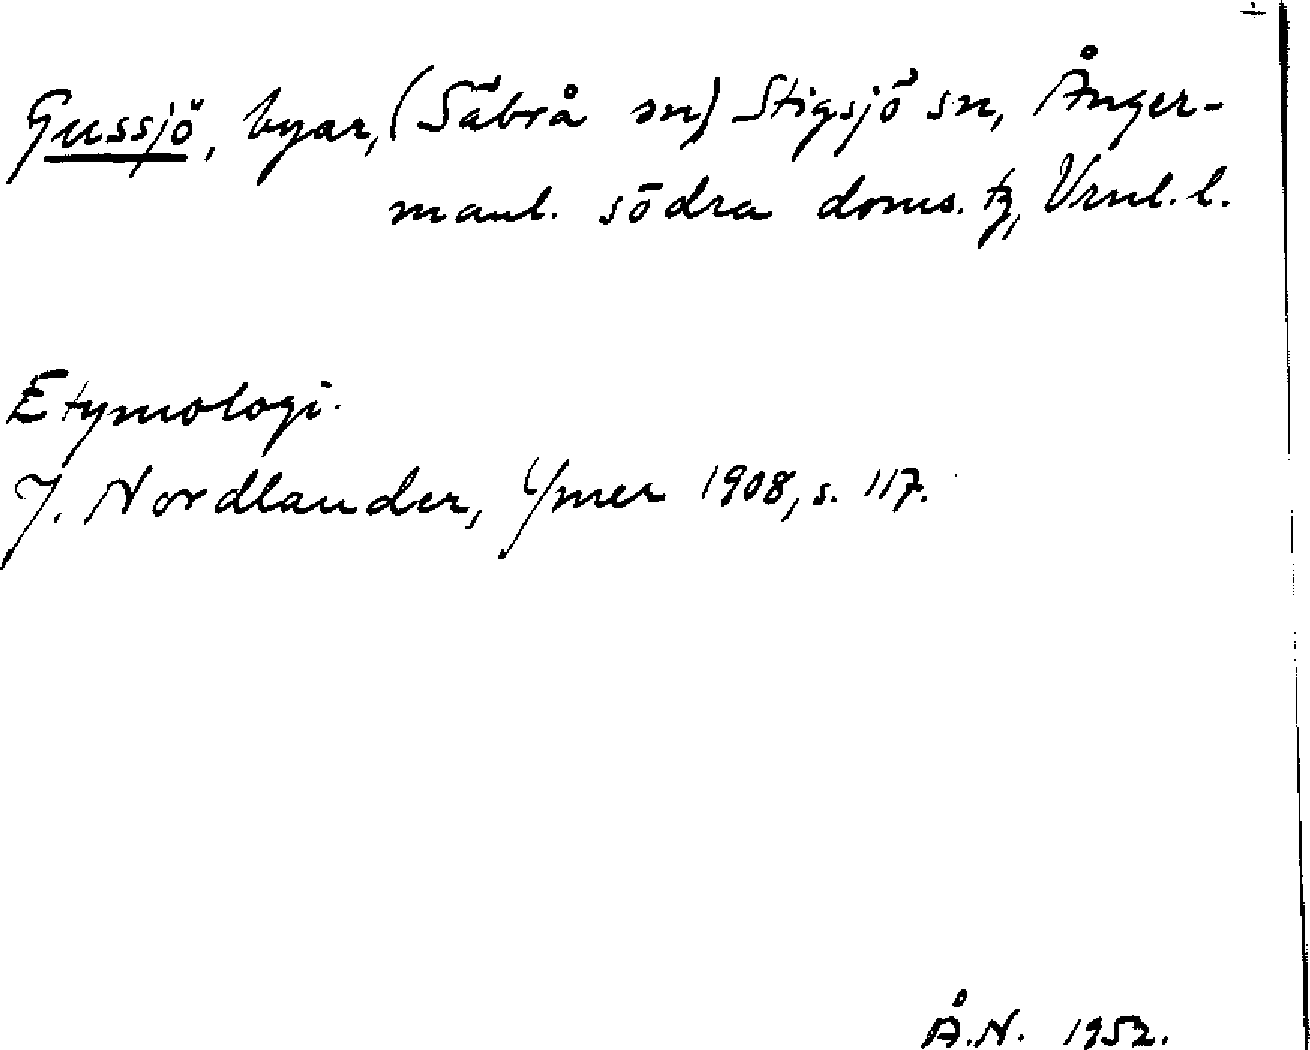 Gussjö, byar, (Säbrå sn) Stigsjö sn, Ånger-
manl. södra doms. tg, Vrnl. l.
Etymologi.
J. Nordlander, Ymer 1908, s. 117.
Å.N. 1952.